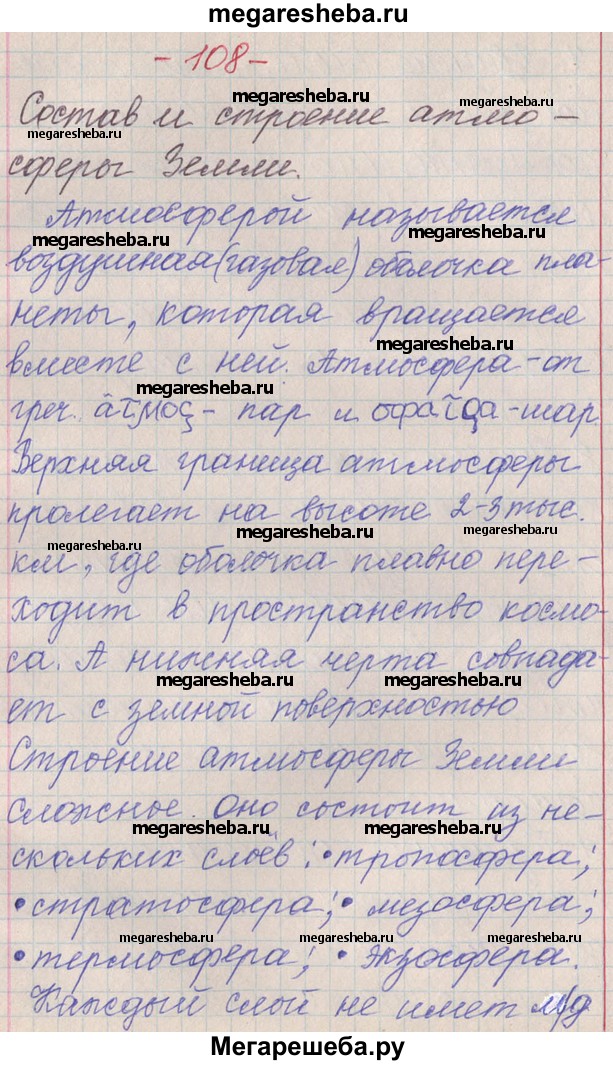 megaresheba.ru
- 108 -
megaresheba.ru megaresheba.ru
Состав и строение атмо-
megaresheba.ru
сферы Земли.
Атмосферой называется
megaresheba.ru megaresheba.ru
воздушная (газовая) оболочка пла-
неты, которая вращается
megaresheba.ru
вместе с ней. Атмосфера - от
megaresheba.ru
греч. - пар и - шар.
Верхняя граница атмосферы
пролегает на высоте 2-3 тыс.
megaresheba.ru
megaresheba.ru megaresheba.ru
км, где оболочка плавно пере-
ходит в пространство космо-
са. А нижняя черта совпада-
megaresheba.ru megaresheba.ru
ет с земной поверхностью
Строение атмосферы Земли
сложное. Оно состоит из не-
megaresheba.ru megaresheba.ru
скольких слоёв: • тропосфера;
• стратосфера; • мезосфера;
megaresheba.ru megaresheba.ru megaresheba.ru
• термосфера; • экзосфера.
Каждый слой не имет м/д
Мегарешеба.ру